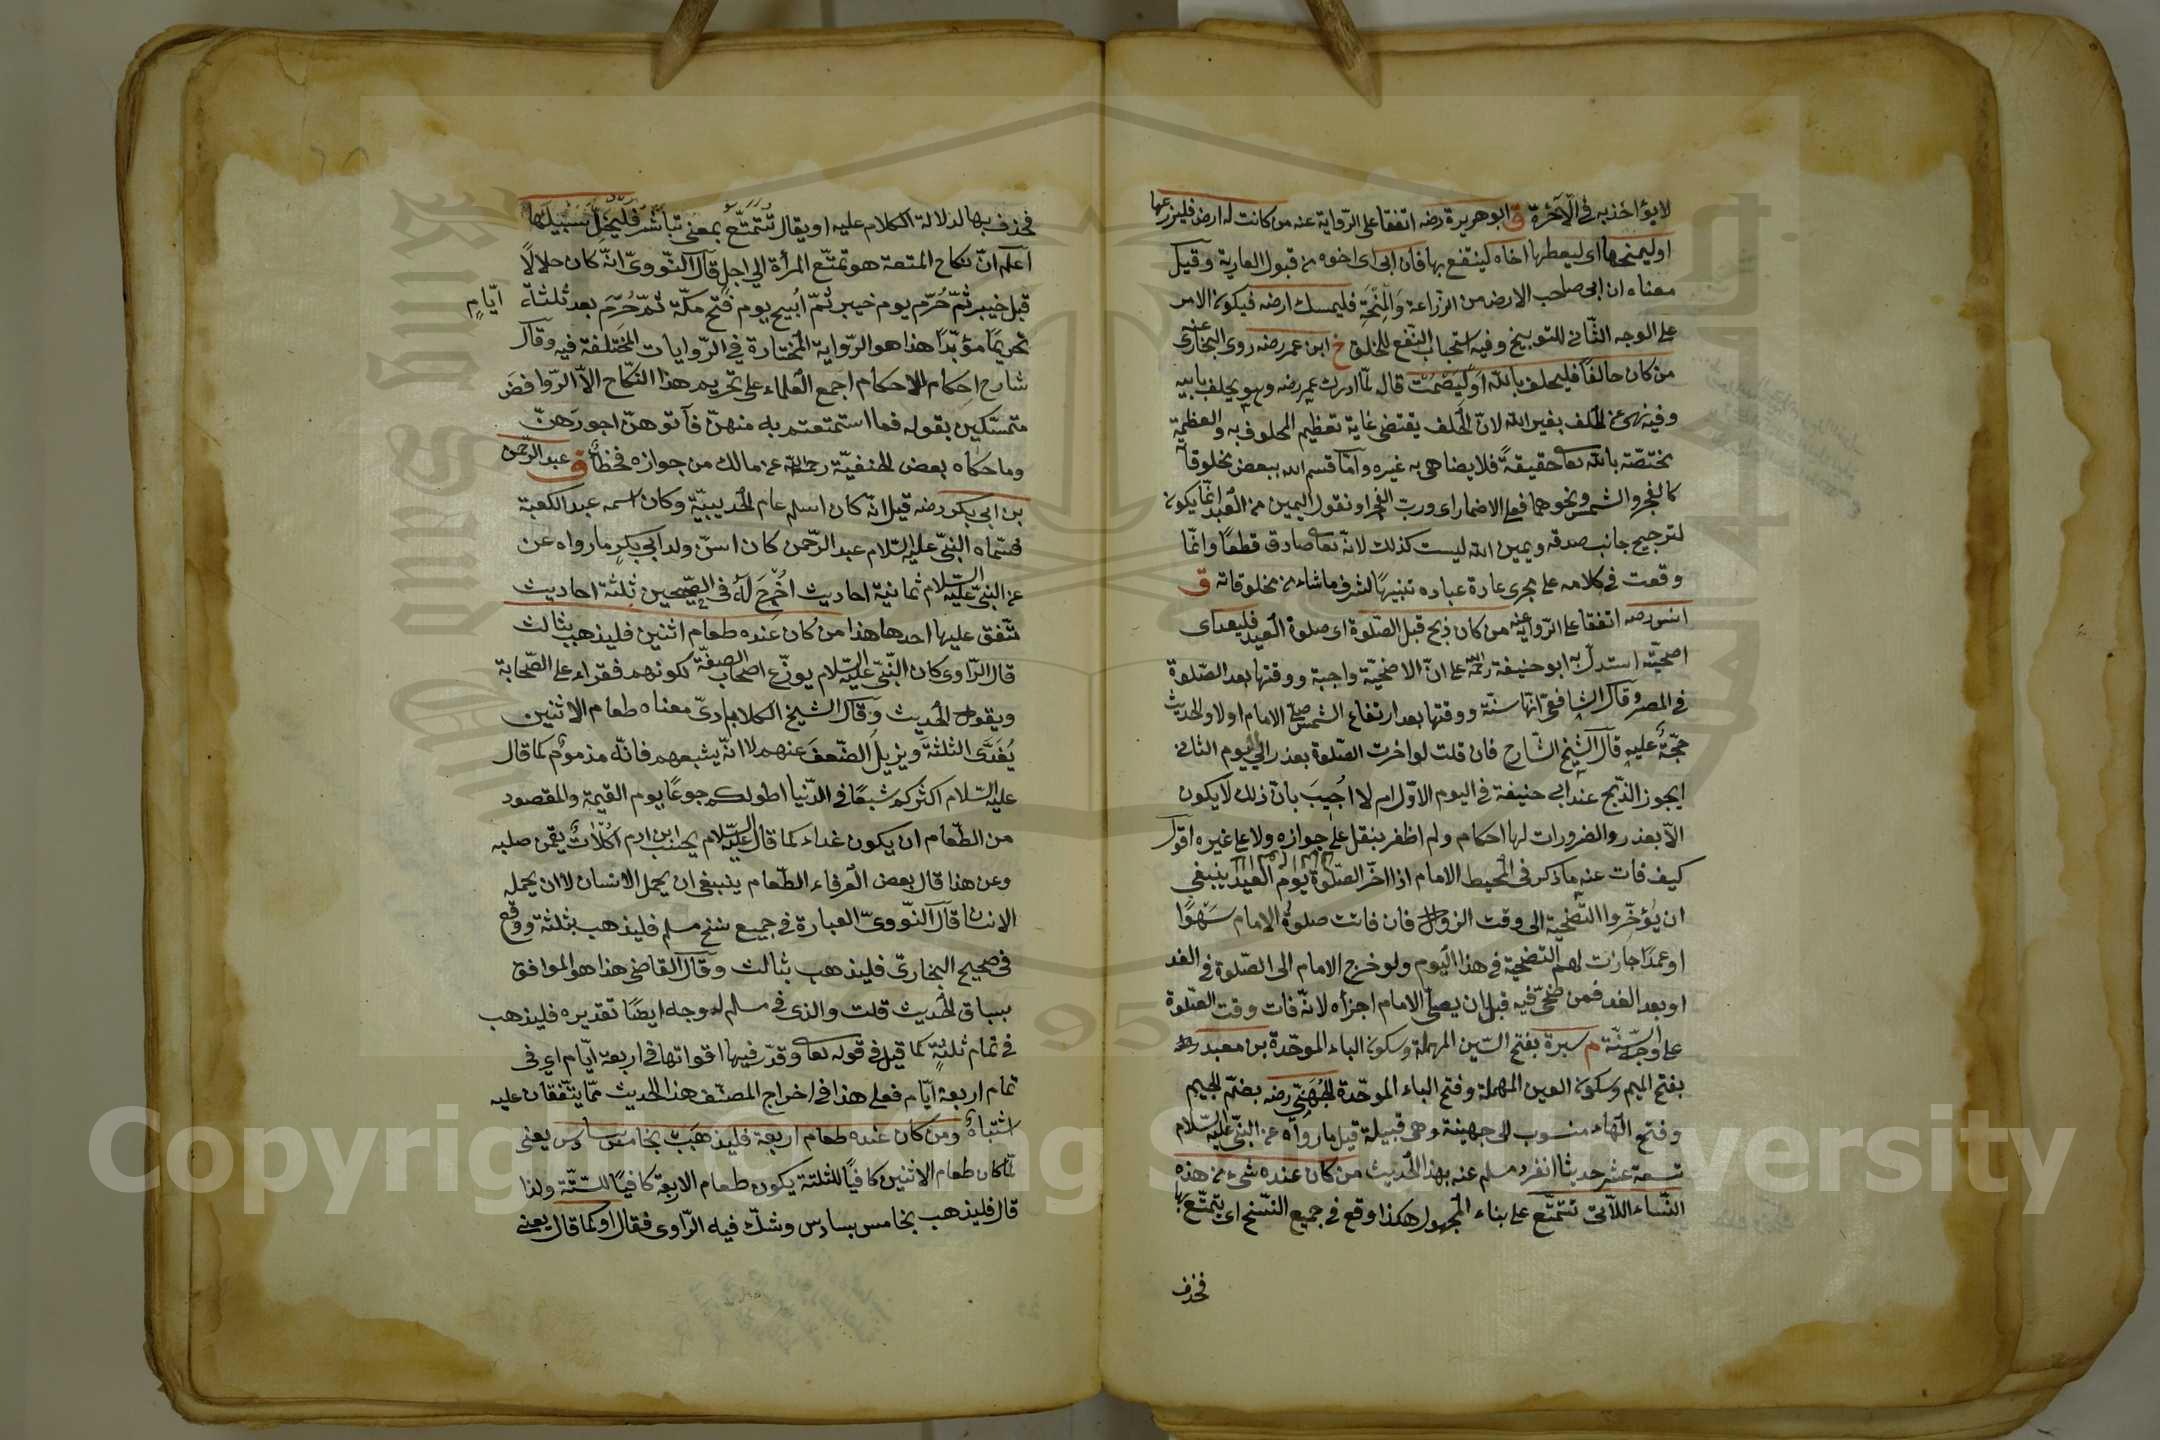 لا يؤاخذ به فى الآخرة ق ابو هريرة رضه اتفقا على الرواية عنه من كانت له ارض فليزرعها
او ليمنحها اى ليعطها اخاه لينتفع بها فان ابى اى اخوه من قبول العارية وقيل
معناه ان ابى صاحب الارض من الزراعة والمنحة فليمسك ارضه فيكون الامر
على الوجه الثانى للتوبيخ وفيه استحباب النفع للخلق خ ابن عمر رضه روى البخارى عنه
من كان حالفا فليحلف بالله او ليصمت قال لما ادرك عمر رضه وهو يحلف بابيه
وفيه نهى عن الحلف بغير الله لان الحلف يقتضى غاية تعظيم المحلوف به والعظمة
مختصة بالله تعا حقيقة فلا يضاهى به غيره واما قسم الله ببعض مخلوقاته
كالفجر والشمس ونحوهما فعلى الاضمار اى ورب الفجر او نقول اليمين من العبد انما يكون
لترجيح جانب صدقه ويمين الله ليست كذلك لانه تعا صادق قطعا وانما
وقعت فى كلامه على مجرى عادة عباده تنبيها لشرف ما شاء من مخلوقاته ق
انس رضه اتفقا على الرواية عنه من كان ذبح قبل الصلوة اى صلوة العيد فليعد اى
اضحيته استدل به ابو حنيفة رحمه الله على ان الاضحية واجبة ووقتها بعد الصلوة
فى المصر وقال الشافعى انها سنة ووقتها بعد ارتفاع الشمس صلى الامام اولا والحديث
حجة عليه قال الشيخ الشارح فان قلت لو اخرت الصلوة بعذر الى اليوم الثانى
ايجوز الذبح عند ابى حنيفة فى اليوم الاول ام لا اجيب بان ذلك لا يكون
الا بعذر والضرورات لها احكام ولم اظفر بنقل على جوازه ولا على غيره اقول
كيف فات عنه ما ذكر فى المحيط الامام اذا اخر الصلوة يوم العيد ينبغى
ان يؤخروا التضحية الى وقت الزوال فان فاتت صلوة الامام سهوا
او عمدا جازت لهم التضحية فى هذا اليوم ولو خرج الامام الى الصلوة فى الغد
او بعد الغد فمن ضحى فيه قبل ان يصلى الامام اجزأه لانه فات وقت الصلوة
على وجه السنة م سبرة بفتح السين المهملة وسكون الباء الموحدة بن معبد
بفتح الميم وسكون العين المهملة وفتح الباء الموحدة الجهنى رضه بضم الجيم
وفتح الهاء منسوب الى جهينة وهى قبيلة قيل ما رواه عن النبى عليه السلام
تسعة عشر حديثا انفرد مسلم عنه بهذا الحديث من كان عنده شىء من هذه
النساء اللاتى تتمتع على بناء المجهول هكذا وقع فى جميع النسخ اى يتمتع بها
فحذف
فحذف بها لدلالة الكلام عليه او يقال تتمتع بمعنى تباشر فليخل سبيلها
اعلم ان نكاح المتعة هو تمتع المرأة الى اجل قال النووى انه كان حلالا
قبل خيبر ثم حرم يوم خيبر ثم ابيح يوم فتح مكة ثم حرم بعد ثلثة ايام
تحريما مؤبدا هذا هو الرواية المختارة فى الروايات المختلفة فيه وقال
شارح احكام الاحكام اجمع العلماء على تحريم هذا النكاح الا الروافض
متمسكين بقوله فما استمتعتم به منهن فآتوهن اجورهن
وما حكاه بعض الحنفية رحمه الله عن مالك من جوازه فخطأ ق عبد الرحمن
بن ابى بكر رضه قيل انه كان اسلم عام الحديبية وكان اسمه عبد الكعبة
فسماه النبى عليه السلام عبد الرحمن كان اسن ولد ابى بكر ما رواه عن
عن النبى عليه السلام ثمانية احاديث اخرج له فى الصحيحين ثلثة احاديث
متفق عليها احدها هذا من كان عنده طعام اثنين فليذهب بثالث
قال الراوى كان النبى عليه السلام يوزع اصحاب الصفة لكونهم فقراء على الصحابة
ويقول الحديث وقال الشيخ الكلابادى معناه طعام الاثنين
يغذى الثلثة ويزيل الضعف عنهم لا انه يشبعهم فانه مذموم كما قال
عليه السلام اكثركم شبعا فى الدنيا اطولكم جوعا يوم القيمة والمقصود
من الطعام ان يكون غداء كما قال عليه السلام بحسب ابن ادم اكلات يقمن صلبه
وعن هنا قال بعض العرفاء الطعام ينبغى ان يحمل الانسان لا ان يحمله
الانسان قال النووى العبارة فى جميع نسخ مسلم فليذهب بثلثة ووقع
فى صحيح البخارى فليذهب بثالث وقال القاضى هذا هو الموافق
بسياق الحديث قلت والذى فى مسلم له وجه ايضا تقديره فليذهب
فى تمام ثلثة كما قيل فى قوله تعا وقدر فيها اقواتها فى اربعة ايام اى فى
تمام اربعة ايام فعلى هذا فى اخراج المصنف هذا الحديث مما يتفقان عليه
اشتباه ومن كان عنده طعام اربعة فليذهب بخامس سادس يعنى
لما كان طعام الاثنين كافيا للثلثة يكون طعام الاربعة كافيا للستة ولذا
قال فليذهب بخامس بسادس وشك فيه الراوى فقال او كما قال يعنى
Copyright © King Saud University